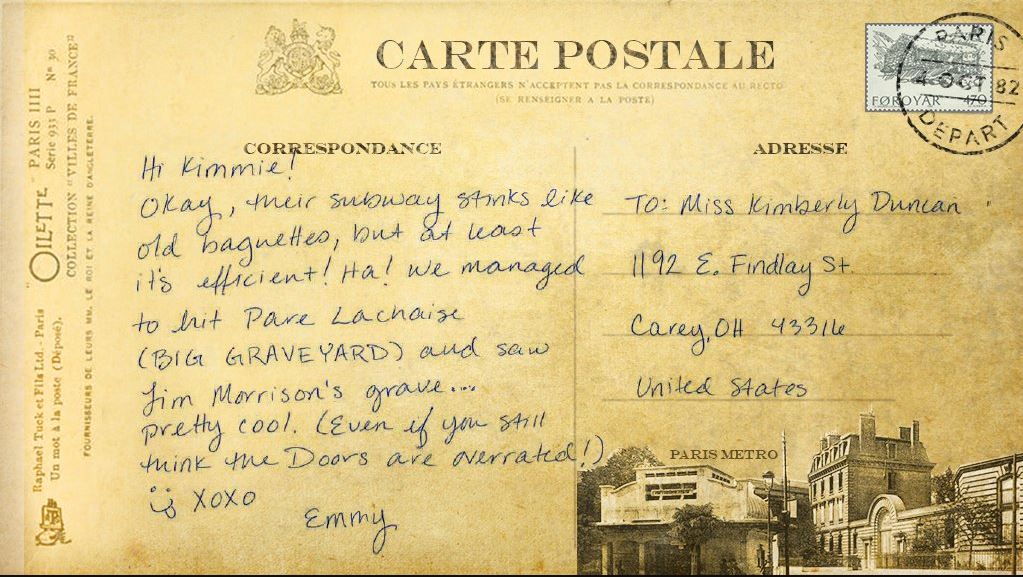 CARTE POSTALE
TOUS LES PAYS ÉTRANGERS N'ACCEPTENT PAS LA CORRESPONDANCE AU RECTO
(SE RENSEIGNER A LA POSTE)
PARIS
4 OCT 82
DEPART
FØROYAR 470
"OILETTE" PARIS IIII
Série 933 P Nº 30
COLLECTION "VILLES DE FRANCE"
Raphael Tuck et Fils Ltd. - Paris
Un mot à la poste (Déposé).
FOURNISSEURS DE LEURS MM. LE ROI ET LA REINE D'ANGLETERRE.
CORRESPONDANCE
Hi Kimmie!
Okay, their subway stinks like
old baguettes, but at least
it's efficient! Ha! We managed
to hit Pare Lachaise
(BIG GRAVEYARD) and saw
Jim Morrison's grave...
pretty cool. (Even if you still
think the Doors are overrated!)
XOXO
Emmy
ADRESSE
To: Miss Kimberly Duncan
1192 E. Findlay St.
Carey, OH 43316
United States
PARIS METRO